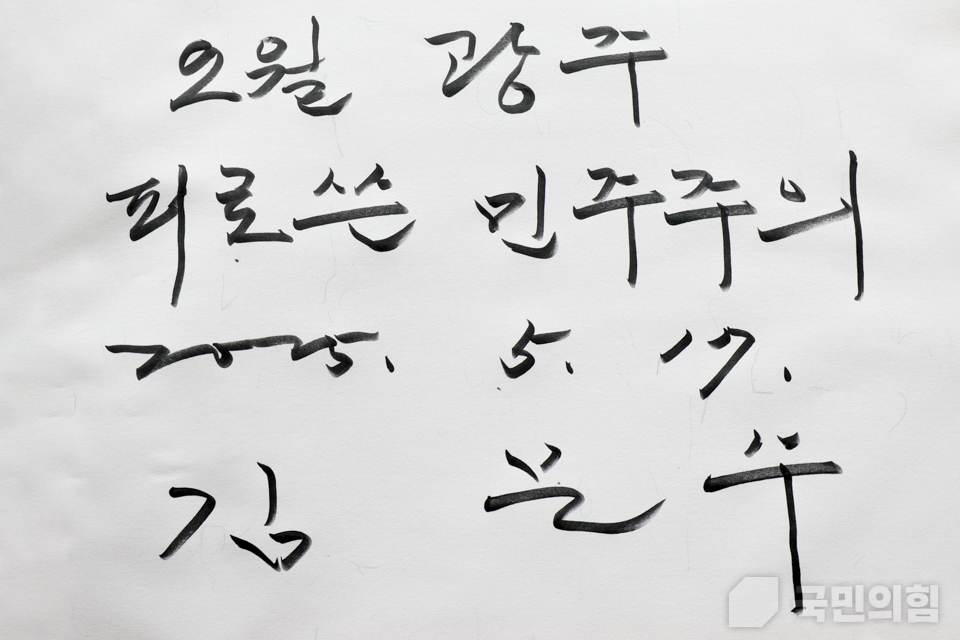 오월 광주
피로쓴 민주주의
2025. 5. 17.
김 문 수
국민의힘